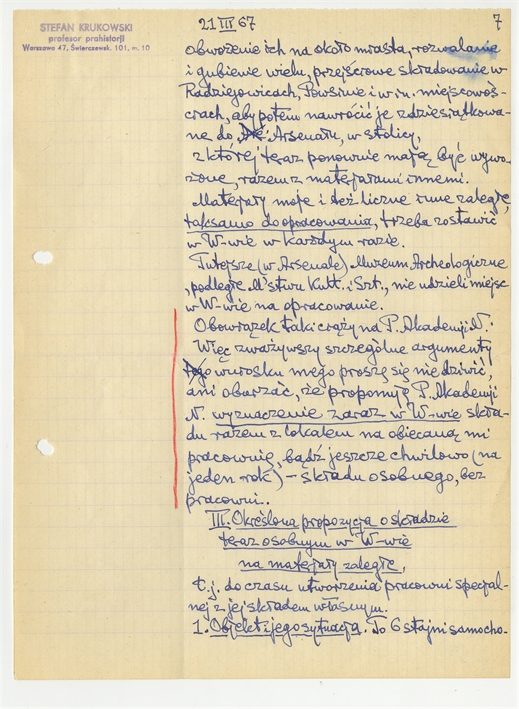 STEFAN KRUKOWSKI
profesor prahistorji
Warszawa 47, Świerczewsk. 101, m. 10
21 III 67
7
obwożenie ich na około miasta, rozwalanie
i gubienie wielu, przejściowe składowanie w
Radziejowicach, Powsinie i w in. miejscowoś-
ciach, aby potem nawrócić je zdziesiątkowa-
ne do Arsenału, w stolicy,
z której teraz ponownie mają być wywo-
żone, razem z materjałami innemi.
Materjały moje i też liczne inne zaległe,
taksamo do opracowania, trzeba zostawić
w W-wie w każdym razie.
Tutejsze (w Arsenale) Muzeum Archeologiczne
, podległe M'stwu Kult. i Szt., nie udzieli miejsc
w W-wie na opracowanie.
Obowiązek taki ciąży na P. Akademji N.:
Więc zważywszy szczególne argumenty
wniosku mego proszę się nie dziwić,
ani obarzać, że proponuję P. Akademji
N. wyznaczenie zaraz w W-wie skła-
du razem z lokalem na obiecaną mi
pracownię, bądź jeszcze chwilowo (na
jeden rok) – składu osobnego, bez
pracowni.
III. Określona propozycja o składzie
teraz osobnym w W-wie
na materjały zaległe,
t.j. do czasu utworzenia pracowni specjal-
nej z jej składem własnym.
1. Objekt i jego sytuacja. To 6 stajni samocho-